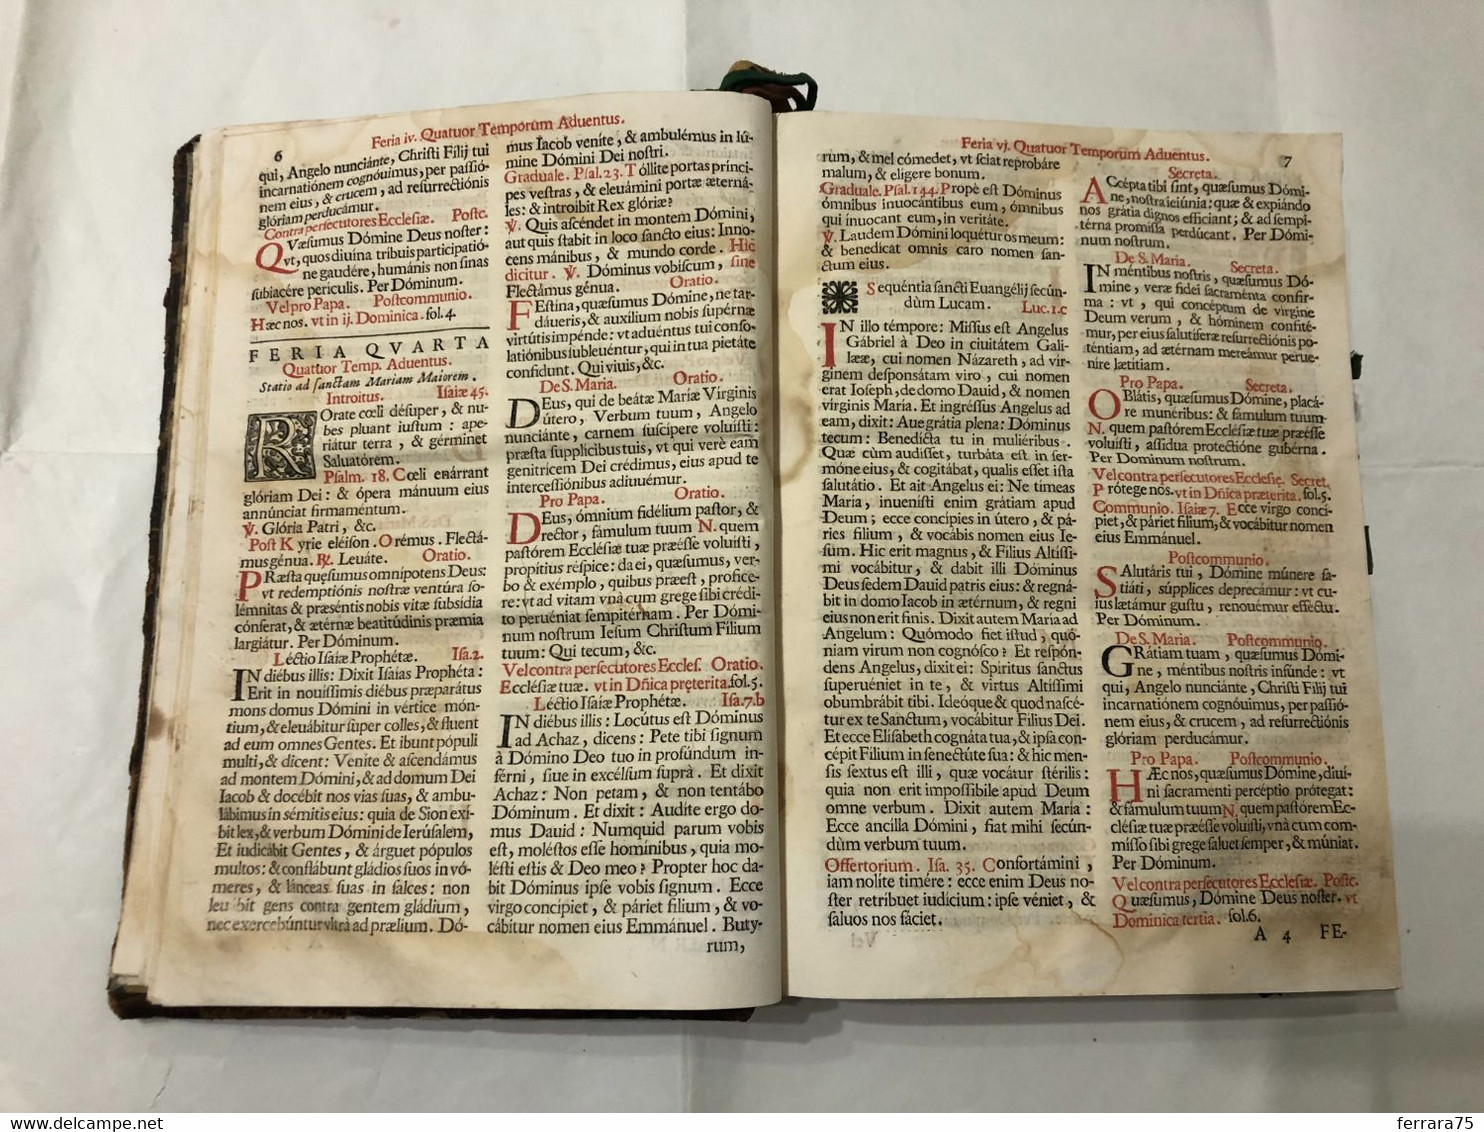 6
Feria iv. Quatuor Temporum Aduentus.
qui, Angelo nunciánte, Christi Filij tui
incarnatiónem cognóuimus, per passió-
nem eius, & crucem, ad resurrectiónis
glóriam perducámur.
Contra persecutores Ecclesiæ. Postc.
QVæsumus Dómine Deus noster:
vt, quos diuína tribuis participatió-
ne gaudére, humánis non sinas
subiacére periculis. Per Dóminum.
Vel pro Papa. Postcommunio.
Hæc nos. vt in ij. Dominica. fol. 4.
FERIA QVARTA
Quattuor Temp. Aduentus.
Statio ad sanctam Mariam Maiorem.
Introitus. Isaiæ 45.
ROrate cœli désuper, & nu-
bes pluant iustum: ape-
riátur terra, & gérminet
Saluatórem.
Psalm. 18. Cœli enárrant
glóriam Dei: & ópera mánuum eius
annúnciat firmaméntum.
℣. Glória Patri, &c.
Post Kyrie eléison. Orémus. Flectá-
mus génua. ℟. Leuáte. Oratio.
PRæsta quęsumus omnípotens Deus:
vt redemptiónis nostræ ventúra so-
lémnitas & præséntis nobis vitæ subsídia
cónferat, & ætérnæ beatitúdinis præmia
largiátur. Per Dóminum.
Léctio Isaiæ Prophétæ. Isa. 2.
IN diébus illis: Dixit Isaías Prophéta:
Erit in nouíssimis diébus præparátus
mons domus Dómini in vértice món-
tium, & eleuábitur super colles, & fluent
ad eum omnes Gentes. Et ibunt pópuli
multi, & dicent: Venite & ascendámus
ad montem Dómini, & ad domum Dei
Iacob & docébit nos vias suas, & ambu-
lábimus in sémitis eius: quia de Sion exí-
bit lex, & verbum Dómini de Ierúsalem,
Et iudicábit Gentes, & árguet pópulos
multos: & conflábunt gládios suos in vó-
meres, & lánceas suas in falces: non
leuábit gens contra gentem gládium,
nec exercebúntur vltrà ad prælium. Dó-
mus Iacob veníte, & ambulémus in lú-
mine Dómini Dei nostri.
Graduale. Psal. 23. Tóllite portas prínci-
pes vestras, & eleuámini portæ æterná-
les: & introíbit Rex glóriæ?
℣. Quis ascéndet in montem Dómini,
aut quis stabit in loco sancto eius: Inno-
cens mánibus, & mundo corde. Hic
dicitur. ℣. Dóminus vobíscum, sine
Flectámus génua. Oratio.
FEstina, quæsumus Dómine, ne tar-
dáueris, & auxílium nobis supérnæ
virtútis impénde: vt aduéntus tui conso-
latiónibus subleuéntur, qui in tua pietáte
confídunt. Qui viuis, &c.
De S. Maria. Oratio.
DEus, qui de beátæ Maríæ Virginis
útero, Verbum tuum, Angelo
nunciánte, carnem suscípere voluísti:
præsta supplícibus tuis, vt qui verè eam
genitrícem Dei crédimus, eius apud te
intercessiónibus adiuuémur.
Pro Papa. Oratio.
DEus, ómnium fidélium pastor, &
rector, fámulum tuum N. quem
pastórem Ecclésiæ tuæ præésse voluísti,
propítius réspice: da ei, quæsumus, ver-
bo & exémplo, quibus præest, profíce-
re: vt ad vitam vnà cum grege sibi crédi-
to peruéniat sempitérnam. Per Dómi-
num nostrum Iesum Christum Filium
tuum: Qui tecum, &c.
Vel contra persecutores Eccles. Oratio.
Ecclésiæ tuæ. vt in Dñica pręterita. fol. 5.
Léctio Isaíæ Prophétæ. Isa. 7. b
IN diébus illis: Locútus est Dóminus
ad Achaz, dicens: Pete tibi signum
à Dómino Deo tuo in profúndum in-
férni, siue in excélsum suprà. Et dixit
Achaz: Non petam, & non tentábo
Dóminum. Et dixit: Audíte ergo do-
mus Dauid: Numquid parum vobis
est, moléstos esse homínibus, quia mo-
lésti estis & Deo meo? Propter hoc da-
bit Dóminus ipse vobis signum. Ecce
virgo concípiet, & páriet fílium, & vo-
cábitur nomen eius Emmánuel. Buty-
rum,
Feria vj. Quatuor Temporum Aduentus.
7
rum, & mel cómedet, vt sciat reprobáre
malum, & elígere bonum.
Graduale. Psal. 144. Propè est Dóminus
ómnibus inuocántibus eum, ómnibus
qui ínuocant eum, in veritáte.
℣. Laudem Dómini loquétur os meum:
& benedicat omnis caro nomen san-
ctum eius.
Sequéntia sancti Euangélij secún-
dùm Lucam. Luc. 1. c
IN illo témpore: Missus est Angelus
Gábriel à Deo in ciuitátem Gali-
lææ, cui nomen Názareth, ad vír-
ginem desponsátam viro, cui nomen
erat Ioseph, de domo Dauid, & nomen
vírginis María. Et ingréssus Angelus ad
eam, dixit: Aue grátia plena: Dóminus
tecum: Benedícta tu in muliéribus.
Quæ cùm audísset, turbáta est in ser-
móne eius, & cogitábat, qualis esset ista
salutátio. Et ait Angelus ei: Ne tímeas
Maria, inuenísti enim grátiam apud
Deum; ecce concípies in útero, & pá-
ries fílium, & vocábis nomen eius Ie-
sum. Hic erit magnus, & Fílius Altíssi-
mi vocábitur, & dabit illi Dóminus
Deus sedem Dauid patris eius: & regná-
bit in domo Iacob in ætérnum, & regni
eius non erit finis. Dixit autem Maria ad
Angelum: Quómodo fiet istud, quó-
niam virum non cognósco? Et respón-
dens Angelus, dixit ei: Spíritus sanctus
superuéniet in te, & virtus Altíssimi
obumbrábit tibi. Ideóque & quod nascé-
tur ex te Sanctum, vocábitur Fílius Dei.
Et ecce Elísabeth cognáta tua, & ipsa con-
cépit Fílium in senectúte sua: & hic men-
sis sextus est illi, quæ vocátur stérilis:
quia non erit impossíbile apud Deum
omne verbum. Dixit autem Maria:
Ecce ancílla Dómini, fiat mihi secún-
dùm verbum tuum.
Offertorium. Isa. 35. Confortámini,
iam nolíte timére: ecce enim Deus no-
ster retríbuet iudícium: ipse véniet, &
saluos nos fáciet.
Secreta.
ACcépta tibi sint, quæsumus Dómi-
ne, nostra ieiúnia: quæ & expiándo
nos grátia dignos efficiant; & ad sempi-
térna promissa perdúcant. Per Dómi-
num nostrum.
De S. Maria. Secreta.
IN méntibus nostris, quæsumus Dó-
mine, veræ fídei sacraménta confír-
ma: vt, qui concéptum de vírgine
Deum verum, & hóminem confité-
mur, per eius salutíferæ resurrectiónis po-
téntiam, ad ætérnam mereámur perue-
níre lætítiam.
Pro Papa. Secreta.
OBlátis, quæsumus Dómine, placá-
re munéribus: & fámulum tuum
N. quem pastórem Ecclésiæ tuæ præésse
voluísti, assídua protectióne gubérna.
Per Dominum nostrum.
Vel contra persecutores Ecclesię. Secret.
Prótege nos. vt in Dñica præterita. fol. 5.
Communio. Isaiæ 7. Ecce virgo concí-
piet, & páriet fílium, & vocábitur nomen
eius Emmánuel.
Postcommunio.
SAlutáris tui, Dómine múnere sa-
tiáti, súpplices deprecámur: vt cu-
ius lætámur gustu, renouémur effectu.
Per Dóminum.
De S. Maria. Postcommunio.
GRátiam tuam, quæsumus Dómi-
ne, méntibus nostris infúnde: vt
qui, Angelo nunciánte, Christi Filij tui
incarnatiónem cognóuimus, per passió-
nem eius, & crucem, ad resurrectiónis
glóriam perducámur.
Pro Papa. Postcommunio.
HÆc nos, quæsumus Dómine, diuí-
ni sacramenti percéptio prótegat:
& fámulum tuum N. quem pastórem Ec-
clésiæ tuæ præésse voluísti, vnà cum com-
misso sibi grege saluet semper, & múniat.
Per Dóminum.
Vel contra persecutores Ecclesiæ. Postc.
Quæsumus, Dómine Deus noster. vt
Dominica tertia. fol. 6.
A 4 FE-
delcampe.net
ferrara75